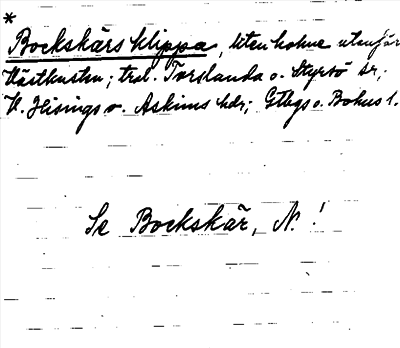 *
Bockskärs klippa, liten holme utanför
Västkusten; trol. Torslanda o. Styrsö sr;
V. Hisings o. Askims hdr; Gtbgs o. Bohus l.
Se Bockskär, N.!